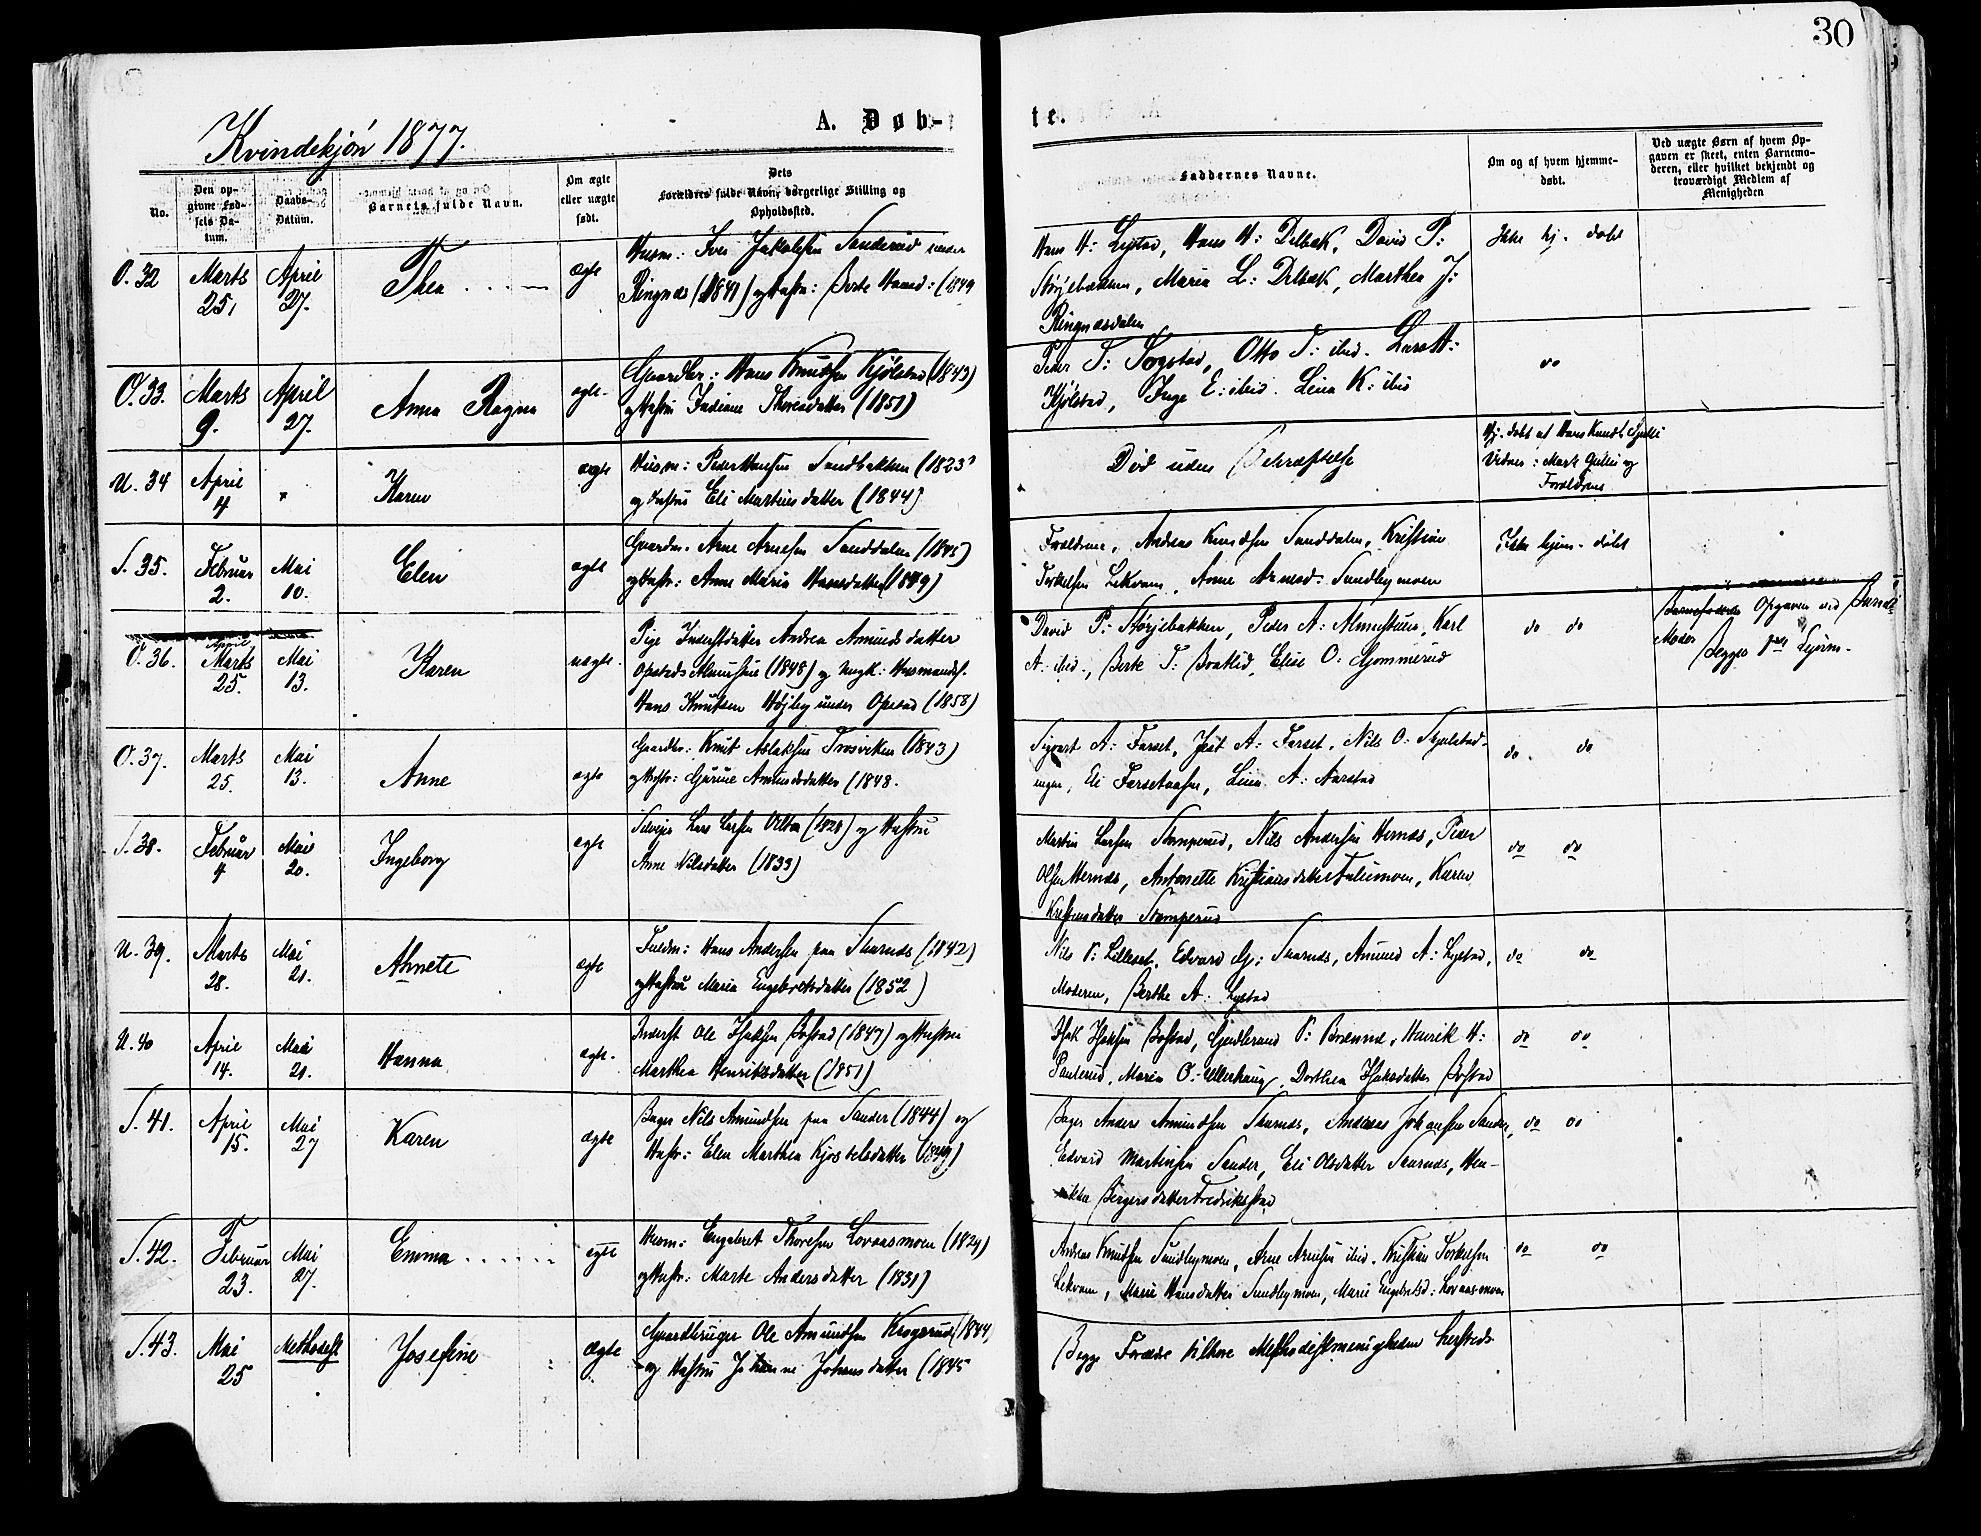 30
Kvindekjön 1877.
A. Døb-
te.
No.
Den op-
givne Fød-
sels Da-
tum.
Daabs-
Datum.
Barnets fulde Navn.
Om ægte
eller uægte
født.
Dets
Forældres fulde Navn, borgerlige Stilling og
Opholdssted.
Faddernes Navne.
Om og af hvem hjemme-
døbt.
Ved uægte Børn af hvem Op-
gaven er skeet, enten Barnemo-
deren, eller hvilket bekjendt og
troværdigt Medlem af
Menigheden
O. 32 Marts 25, April 27. Thea ægte
Husm: Iver Jakobsen Sanderud under
Ringnæs (1841) og Hustr: Berte Hansd: (1849
Hans H: Lystad, Hans H: Delbæk, David P:
Størjebakken, Maria L: Delbæk, Marthea J:
Ringnæsdalen
Ikke hj. døbt
O. 33. Marts 9. April 27. Anna Ragna ægte.
Gaardbr: Hans Knudsen Kjølstad (1843)
og Hustru Indiane Thoresdatter (1851)
Peder T: Sogstad, Otto T: ibid. Lars H:
Kjølstad, Inge E: ibid. Lina K: ibid
do
U. 34 April 4 Karen ægte
Husm: Peder Hansen Sandbakken (1823
og Hustru Eli Martinsdatter (1844)
Død uden Bekræftelse
Hj. døbt af Hans Knuds. Gulli
Vidner: Mart. Gulli og
Forældrene
S. 35. Februar 2. Mai 10. Elen ægte
Gaardm. Arne Arnesen Sanddalen (1845)
og Hustr: Anne Maria Hansdatter (1849)
Forældrene, Andreas Knudsen Sanddalen, Kristian
Torkelsen Lekvam, Anne Arnesd: Sundbymoen
Ikke hjem- døbt
O. 36. April Marts 25. Mai 13. Karen uægte.
Pige Inderstdatter Andrea Amundsdatter
Opstads (1848) og Ungk: Husmands.
Hans Knutsen Højby under Opstad (1858)
David P: Størjebakken, Peder A: Almestuen, Karl
A: ibid., Berte T: Bratlid, Elise O: Gjømmerud
do do
Opgaven ved Barnets
Moder
Begges
O. 37. Marts 25. Mai 13. Anne ægte
Gaardbr: Knut Aslaksen Trosviken (1843)
og Hustr: Gurine Amundsdatter (1848.
Sigvart A: Farset, A: Farset, Nils O:
Eli Farsetaasen, Lina A: Aarstad
do do
S. 38. Februar 4 Mai 20. Ingeborg ægte
Selvejer Lars Larsen (1828) og Hustru
Anne Nilsdatter (1833)
Martin Larsen Stamperud, Nils Andersen Hernæs, Peder
Olsen Hernæs, Antonette Kristiansdatter Sulumoen, Karen
Kristensdatter Stamperud
do do
U. 39. Marts 28. Mai 21. Ahnete ægte
Fuldm: Hans Andersen paa Skarnæs (1842)
og Hustru Maria Engebretsdatter (1852)
Nils P: Lilleset, Edvard G: Skarnæs, Amund A: Lystad,
Moderen, Berthe A: Lystad
do do
U. 40 April 14. Mai 21. Hanna ægte.
Inderst Ole Isaksen Bøstad (1847) og Hustru
Marthea Henriksdatter (1851)
Isak Isaksen Bøstad, Gudbrand P: Brænna, Henrik H:
Paulerud, Maria O: Ullerhaug, Dorthea Isaksdatter Bøstad
do do
S. 41. April 15. Mai 27 Karen ægte
Bager Nils Amundsen paa Sander (1844) og
Hustr: Elen Marthea Kjøstelsdatter
Bager Anders Amundsen Skarnæs, Andreas Johansen Sander,
Edvard Martinsen Sander, Eli Olsdatter Skarnæs, Hen-
rikka Birgersdatter Fredrikstad
do do
S. 42. Februar 23. Mai 27. Emma ægte
Husm: Engebret Thoresen Lovaasmoen (1829)
og Hustr: Marte Andersdatter (1831)
Andreas Knudsen Sundbymoen, Arne Arnesen ibid. Kristian Torkelsen
Lekvam, Marie Hansdatter Sundbymoen, Marie Engebretsd: Lovaasmoen
do do
S. 43. Mai 25 Methodist Josefine Ægte
Gaardbruger Ole Amundsen Krogsrud (1844
og Hustru Johanne Johansdatter (1845
Begge Forældre tilhøre Methodistmenigheden hersteds